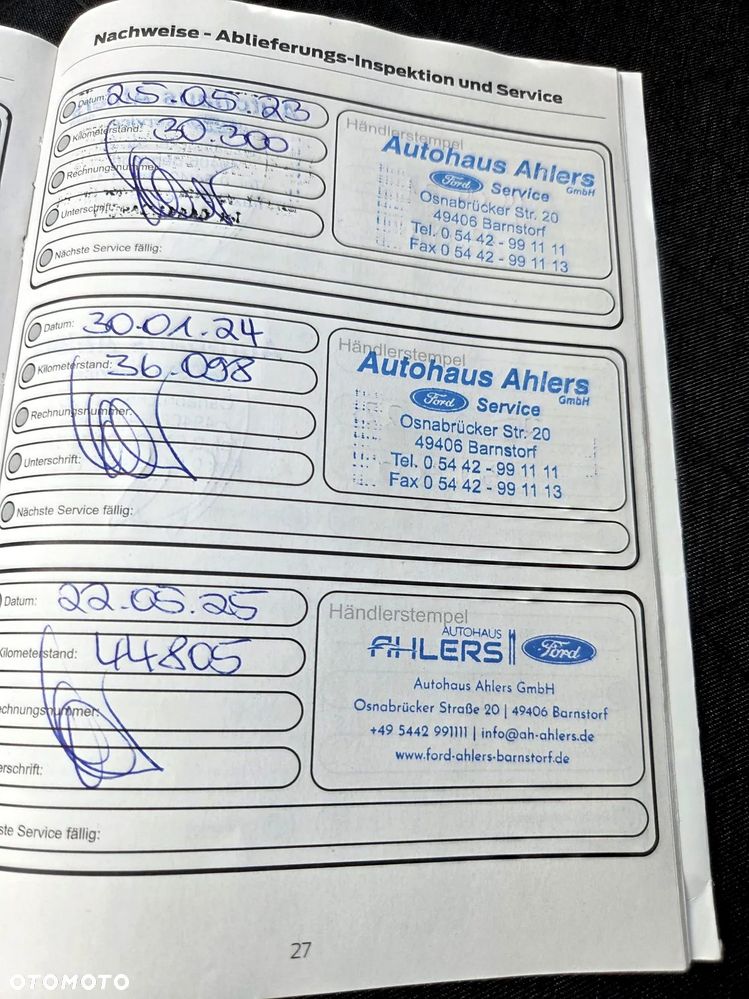 Nachweise - Ablieferungs-Inspektion und Service
Datum: 25.05.23
Kilometerstand: 30.300
Rechnungsnummer:
Unterschrift:
Nächste Service fällig:
Händlerstempel
Autohaus Ahlers
GmbH
Ford Service
Osnabrücker Str. 20
49406 Barnstorf
Tel. 0 54 42 - 99 11 11
Fax 0 54 42 - 99 11 13
Datum: 30.01.24
Kilometerstand: 36.098
Rechnungsnummer:
Unterschrift:
Nächste Service fällig:
Händlerstempel
Autohaus Ahlers
GmbH
Ford Service
Osnabrücker Str. 20
49406 Barnstorf
Tel. 0 54 42 - 99 11 11
Fax 0 54 42 - 99 11 13
Datum: 22.05.25
Kilometerstand: 44805
echnungsnummer:
erschrift:
ste Service fällig:
Händlerstempel
AUTOHAUS
AHLERS Ford
Autohaus Ahlers GmbH
Osnabrücker Straße 20 | 49406 Barnstorf
+49 5442 991111 | info@ah-ahlers.de
www.ford-ahlers-barnstorf.de
27
OTOMOTO